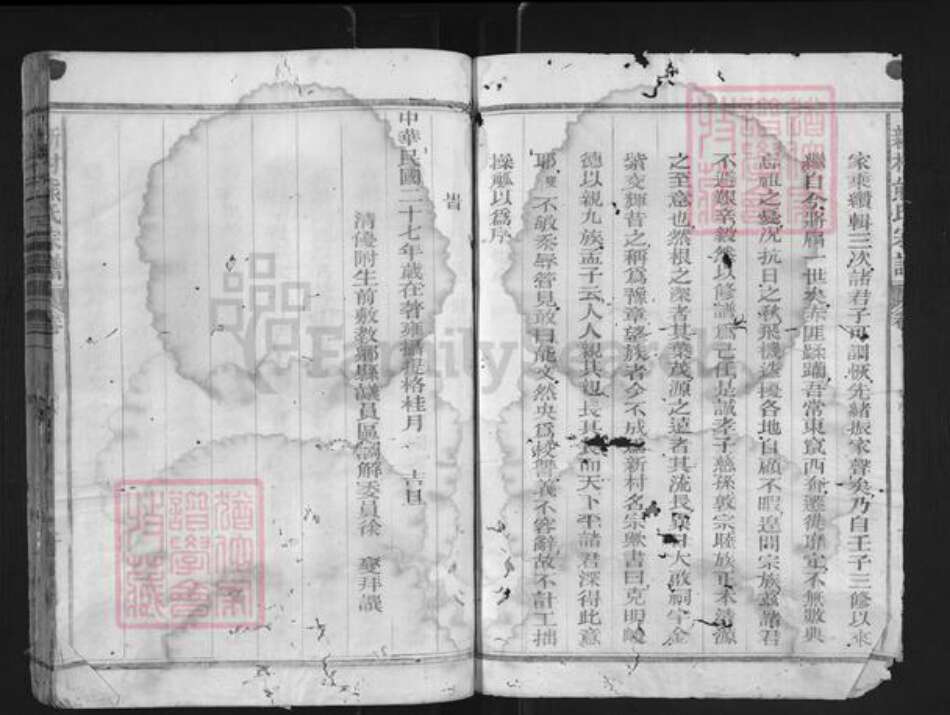 家乘續輯三次諸君子可謂恢先緒振家聲矣乃自壬子三修以來
繼自今將屆一世矣赤匪蹂躪吾常東竄西奔遷徙靡定不無數典
忘祖之憂況抗日之秋飛機造擾各地自顧不暇遑問宗族茲諸君
不避艱辛毅然以修譜為己任是誠孝子慈孫敦宗睦族正本清源
之至意也然根之深者其葉茂源之遠者其流長異日大啟祠宇金
紫交輝昔之稱為豫章望族者今不成為新村名宗歟書曰克明峻
德以親九族孟子云人人親其親長其長而天下平諸君深得此意
耶 不敏忝辱管見敢曰能文然央為校讐義不容辭故不計工拙
操觚以為序
皆
中華民國二十七年歲在著雍攝提格桂月 吉日
清優附生前敷教鄉縣議員區調解委員徐 拜譔
新村熊氏宗譜
FamilySearch